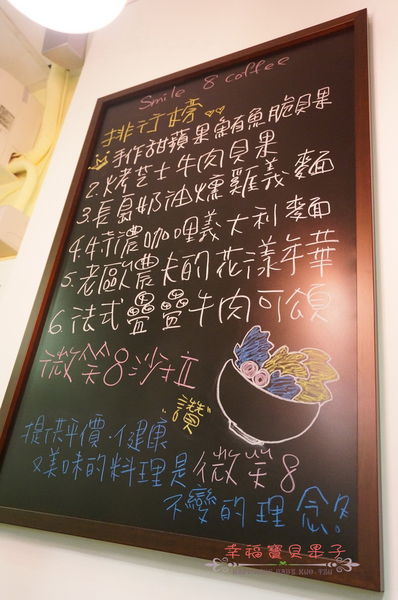 Smile 8 coffee
排行榜
手作甜蘋果鮪魚脆貝果
2.烤芝士牛肉貝果
3.長島奶油燻雞義麵
4.牛蒡濃咖哩義大利麵
5.老歐農夫的花漾年華
6.法式疊疊牛肉可頌
微笑8沙拉
"讚"
提供平價.健康
又美味的料理是微笑8
不變的理念
幸福寶貝果子